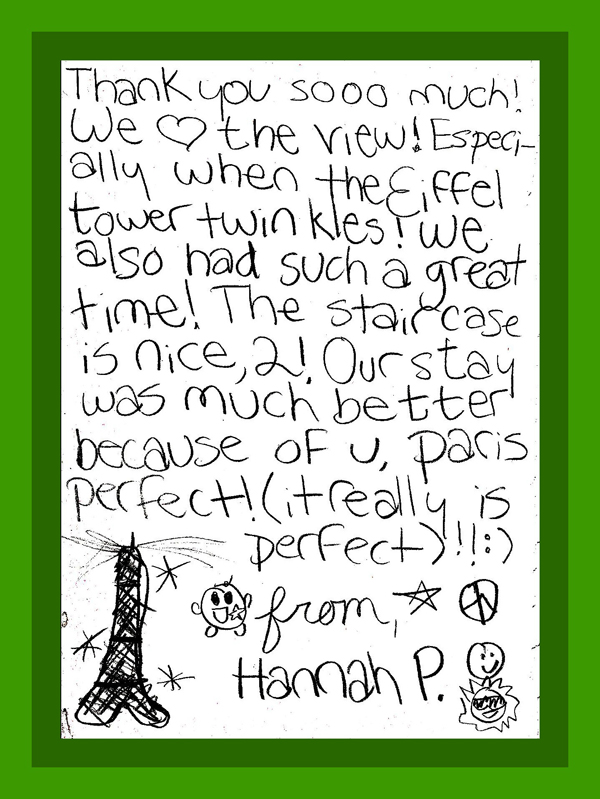 Thank you sooo much!
We ♡ the view! Especi-
ally when the Eiffel
tower twinkles! We
also had such a great
time! The staircase
is nice, 2! Our stay
was much better
because of u, Paris
perfect! (it really is
perfect)!!:)
from,
Hannah P.